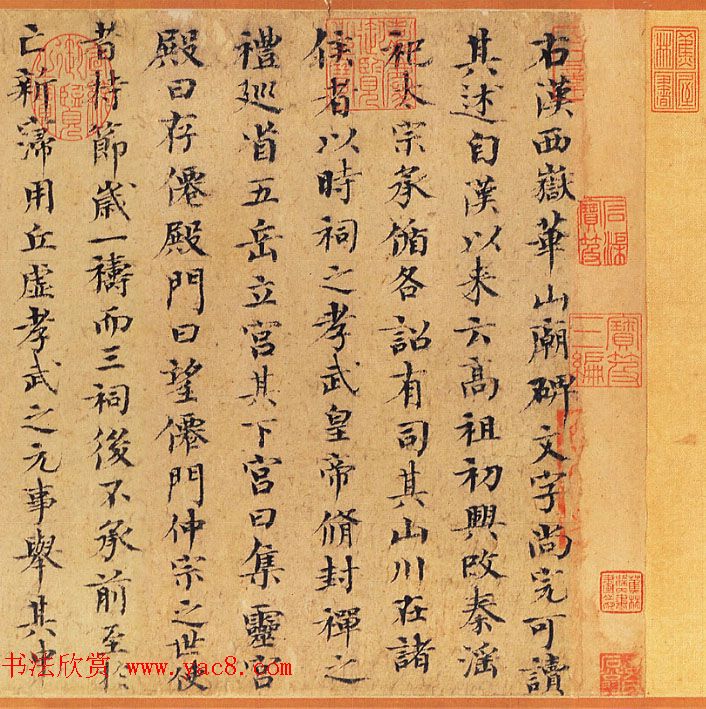 右漢西嶽華山廟碑文字尚完可讀
其述自漢以来云髙祖初興改秦淫
祀太宗承循各詔有司其山川在諸
侯者以時祠之孝武皇帝脩封禪之
禮巡省五岳立宮其下宮曰集靈宮
殿曰存僊殿門曰望僊門仲宗之世使
者持節歳一禱而三祠後不承前至於
亡新寖用丘虛孝武之元事舉其中
书法欣赏 www.yac8.com